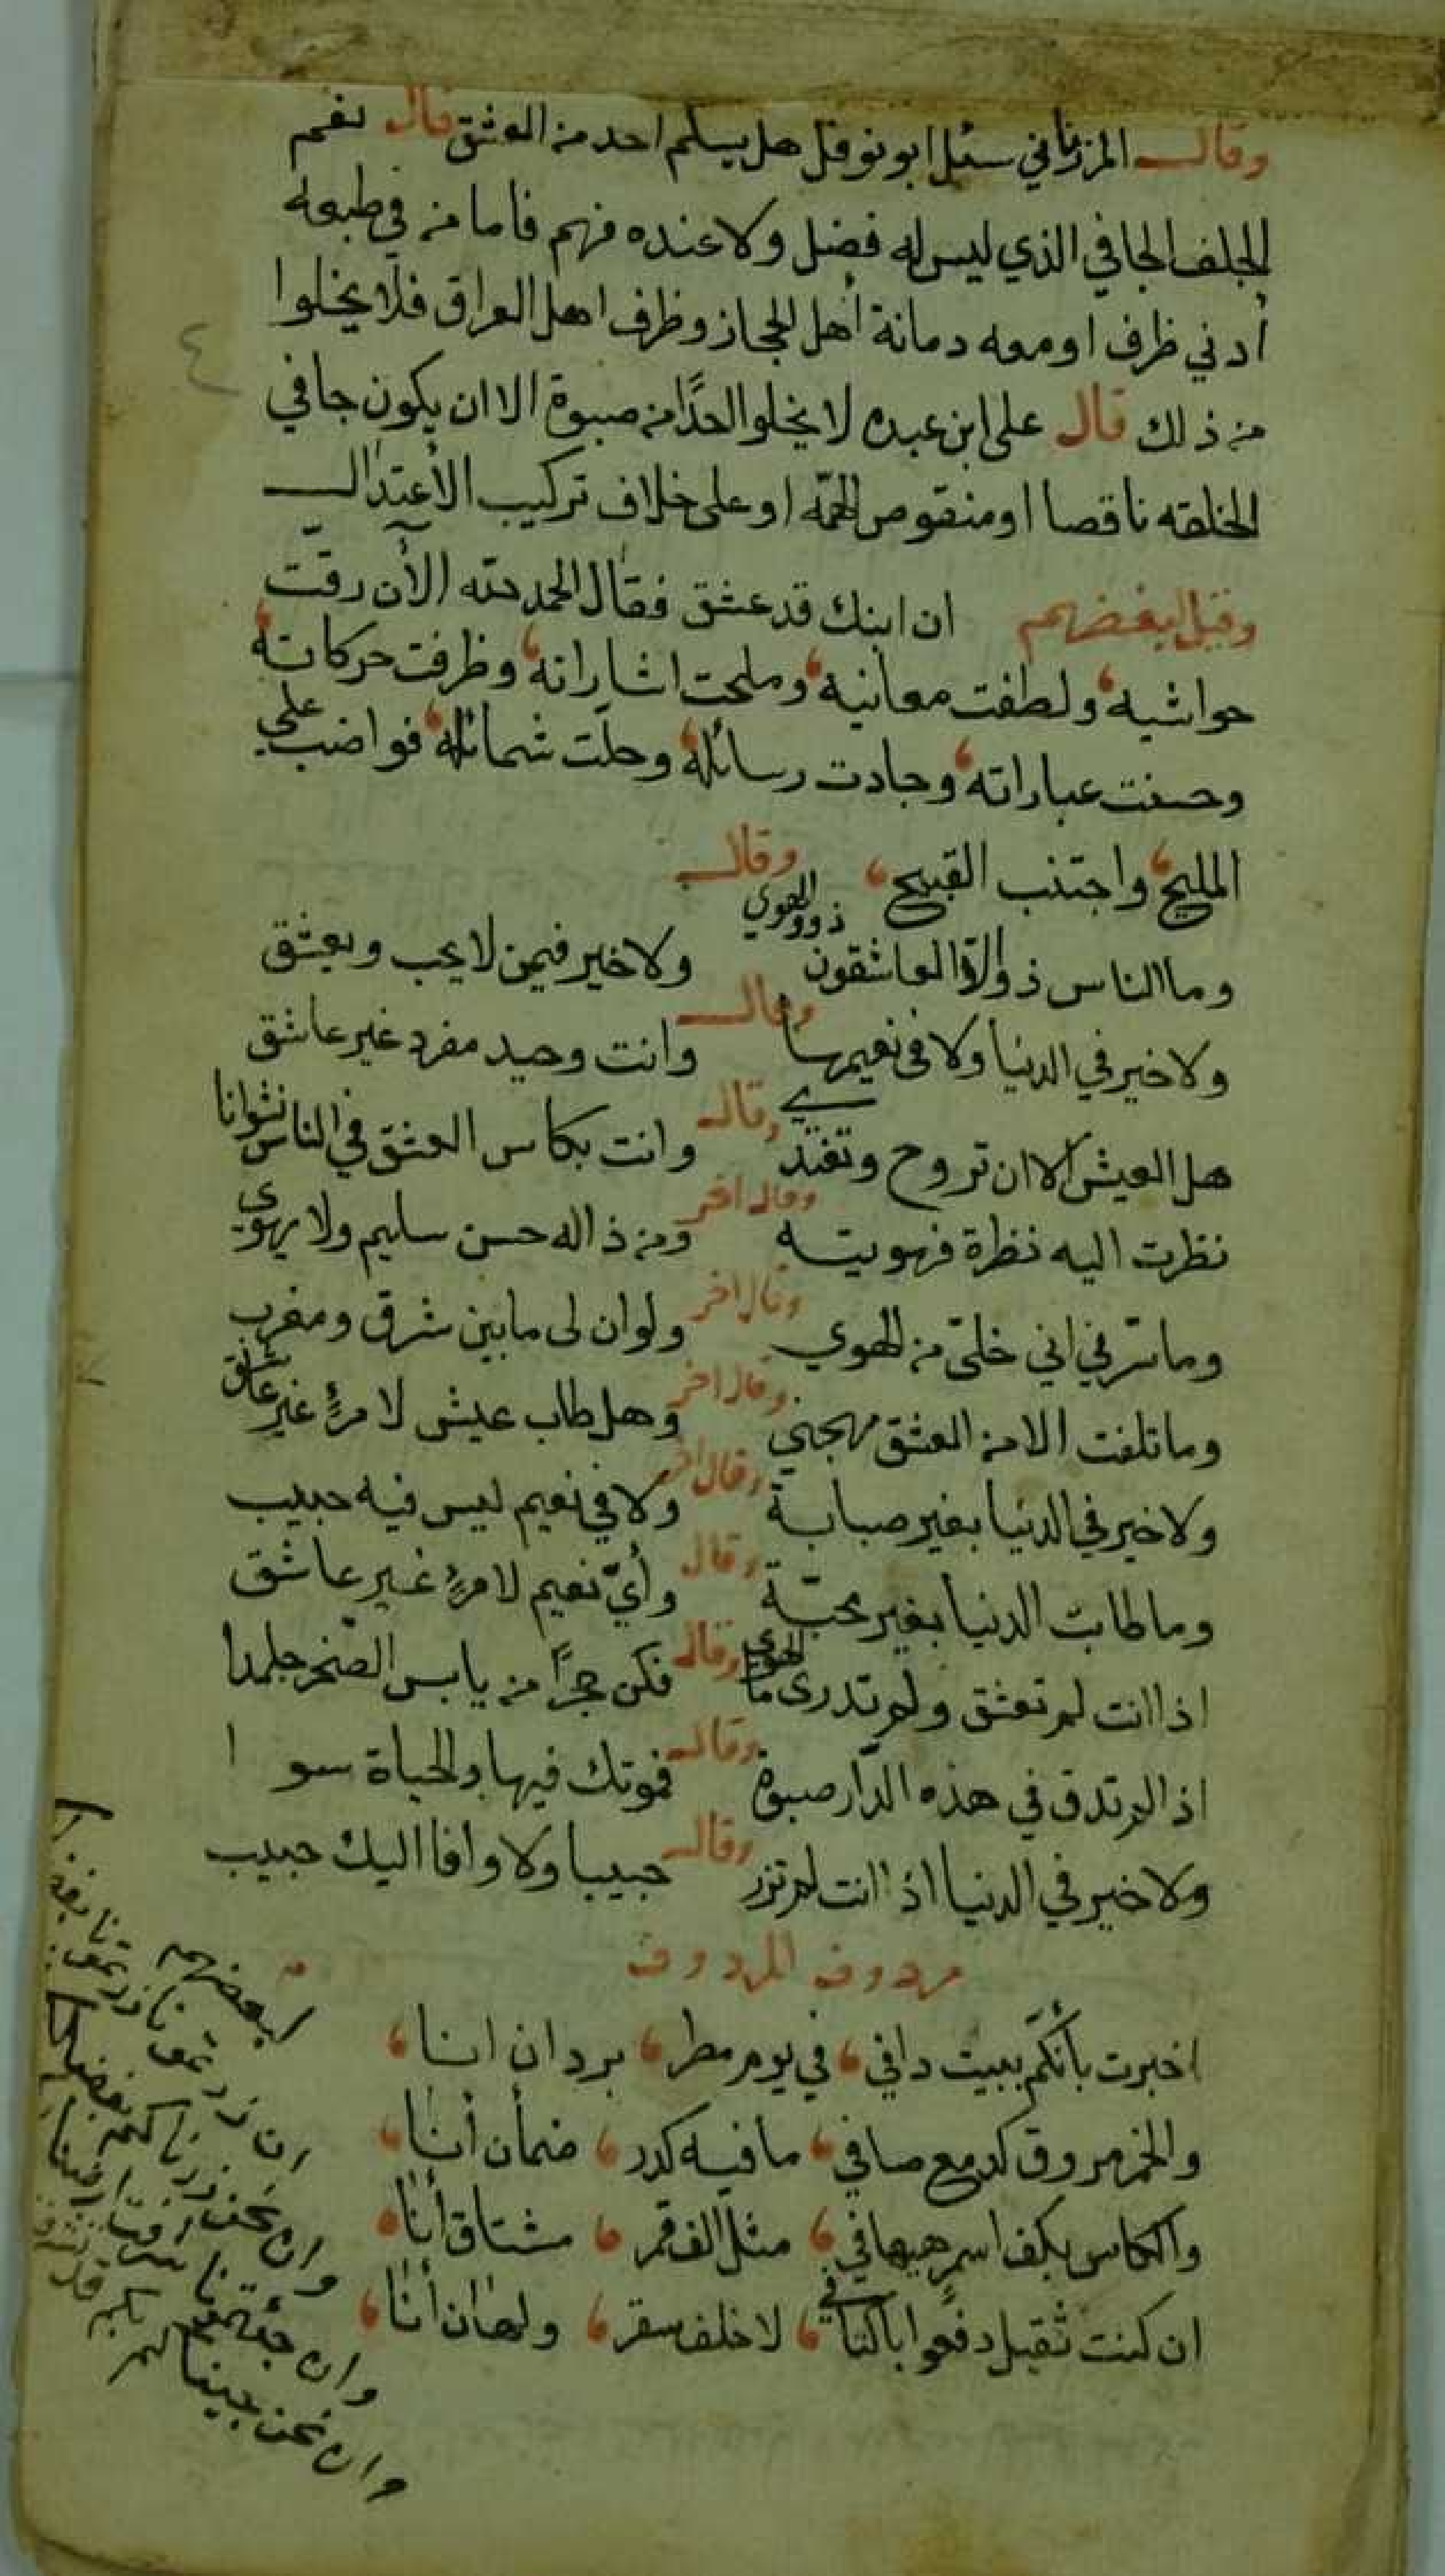 وقال المرزباني سئل ابو نوفل هل يسلم احد من العشق قال نعم
الجلف الجافي الذي ليس له فضل ولا عنده فهم فاما من في طبعه
أدني ظرف او معه دماثة أهل الحجاز وظرف اهل العراق فلا يخلوا
من ذلك قال على ابن عبده لا يخلوا احدًا من صبوة الا ان يكون جافي
الخلقه ناقصا او منقوص الهمّه او على خلاف تركيب الأعتدال
وقيل لبعضهم ان ابنك قد عشق فقال الحمد لله الآن رقّت
حواشيه ولطفت معانيه وملحت اشاراته وظرفت حركاته
وحسنت عباراته وجادت رسائله وحلّت شمائله فواضب على
المليح واجتنب القبيح وقال
وما الناس ذو الا العاشقون ذووالهوي ولا خير فيمن لا يحب ويعشق
وقال
ولا خير في الدنيا ولا فى نعيمها وانت وحيد مفرد غير عاشق
وقال
هل العيش الا ان تروح وتغتدي وانت بكاس العشق في الناس نشوانا
وقال اخر
نظرت اليه نظرة فهويته ومن ذا له حسن سليم ولا يهوي
وقال اخر
وما سرّني اني خليّ من الهوي ولو ان لى ما بين شرق ومغرب
وقال اخر
وما تلفت الا من العشق مهجتي وهل طاب عيش لامرئٍ غير عاشق
وقال اخر
ولا خير في الدنيا بغير صبابة ولا في نعيم ليس فيه حبيب
وقال
وما طابت الدنيا بغير محبّة وأيّ نعيم لامرئٍ غير عاشق
وقال
اذا انت لم تعشق ولم تدرى ما الهوي فكن حجرًا من يابس الصّخر جلمدا
وقال
اذا لم تذق في هذه الدّار صبوة فموتك فيها والحياة سوا
وقال
ولا خير في الدنيا اذا انت لم تزر حبيبا ولا وافا اليك حبيب
مردوف المردوف
اخبرت بأنّكم ببيت دافي في يوم مطر بردان انا
والخمر مروق كدمع صافي ما فيه كدر ضمأن أنا
والكاس بكف اسمر هيهافي مثل الف قمر مشتاق أنا
ان كنت ثقيل دفعوا باكتافي لا خلف سقر ولهان أنا
لبعضهم
ان زرتمونا
وان نحن زرناكم
وان جئتمونا
وان نحن جيناكم